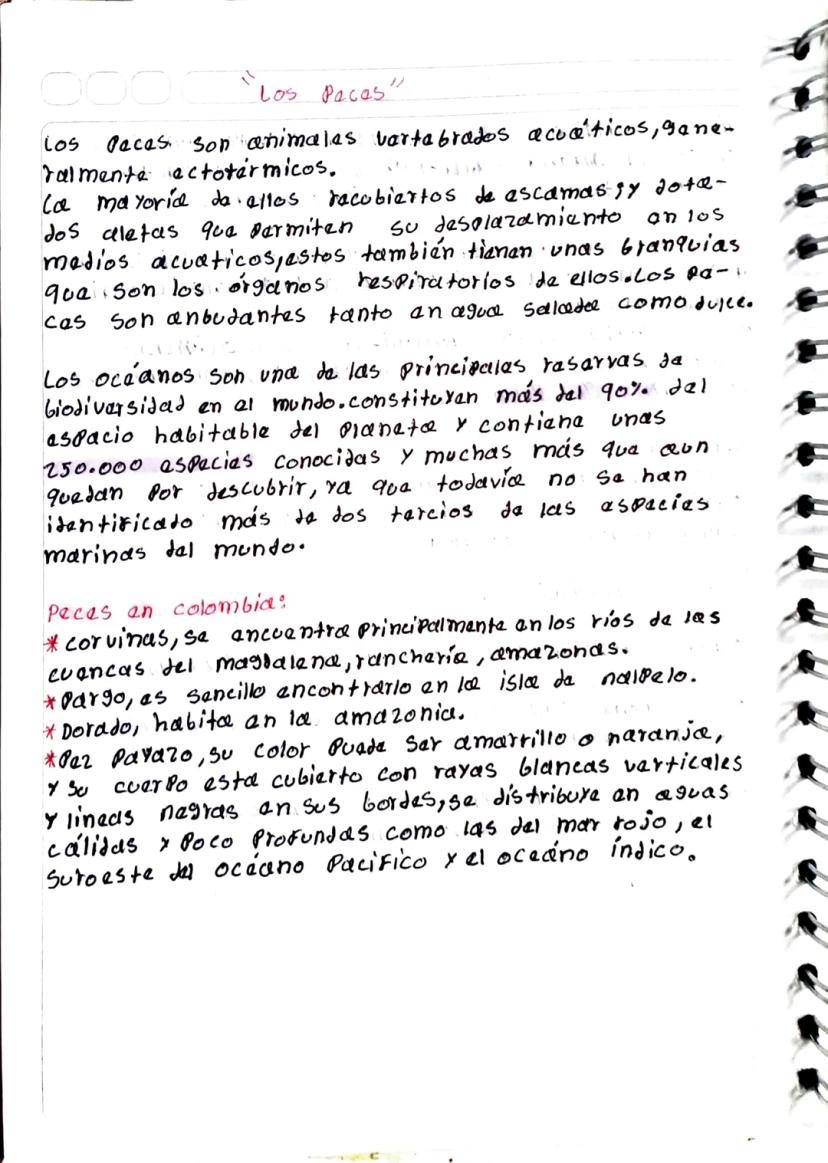 "Los Peces"
Los peces son animales vertebrados acuáticos, gene-
ralmente ectotérmicos.
La mayoría de ellos recobiertos de escamas, y dota-
dos aletas que permiten su desplazamiento en los
medios acuaticos, estos también tienen unas branquias
que son los órganos respiratorios de ellos. Los pe-
ces son anbudantes tanto en agua salada como dulce.
Los océanos son una de las principales reservas de
biodiversidad en el mundo. constituyen más del 90% del
espacio habitable del planeta y contiene unas
250.000 especies conocidas y muchas más que aun
quedan por descubrir, ya que todavía no se han
identificado más de dos tercios de las especies
marinas del mundo.
Peces en colombia:
* corvinas, se encuentra principalmente en los ríos de las
cuencas del magdalena, ranchería, amazonas.
* Pargo, es sencillo encontrarlo en la isla de nalpelo.
* Dorado, habita en la amazonia.
* Pez payazo, su color puede ser amarrillo o naranja,
y su cuerpo esta cubierto con rayas blancas verticales
y lineas negras en sus bordes, se distribuye en aguas
cálidas y poco profundas como las del mar rojo, el
suroeste del océano Pacifico y el oceáno índico.